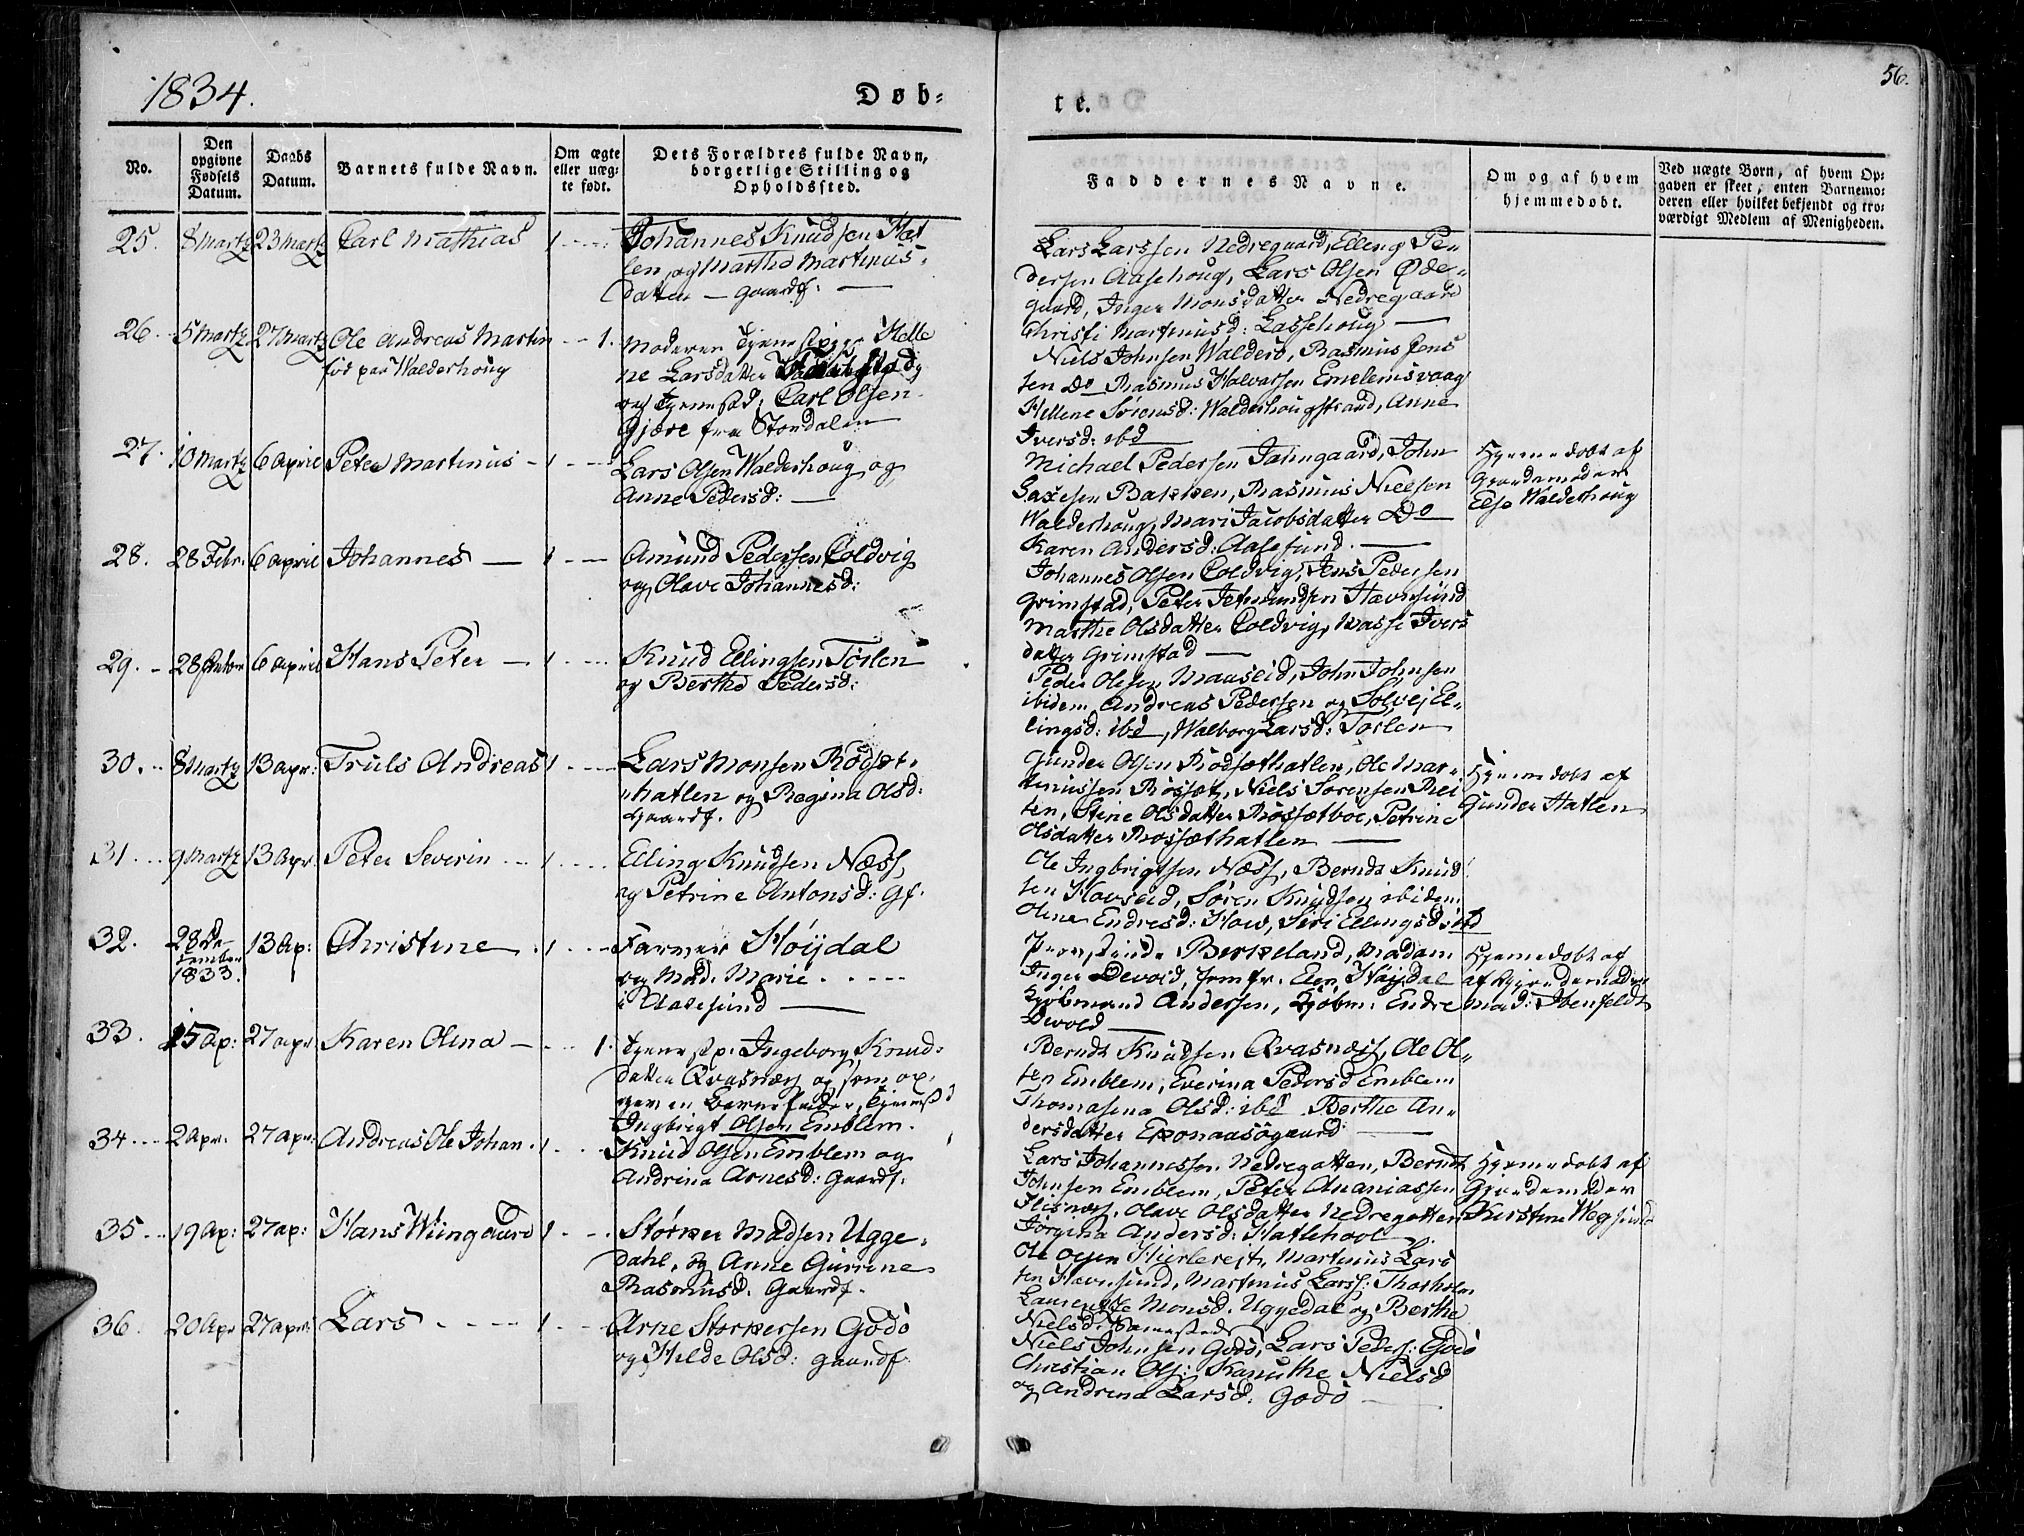 1834.
Døb-
te.
56.
No.
Den opgivne Fødsels Datum.
Daabs Datum.
Barnets fulde Navn.
Om ægte eller uæg-te født.
Dets Forældres fulde Navn, borgerlige Stilling og Opholdssted.
Faddernes Navne.
Om og af hvem hjemmedøbt.
Ved uægte Børn, af hvem Op-
gaven er skeet, enten Barnemo-
deren eller hvilket bekjendt og tro-
værdigt Medlem af Menigheden.
25. 8 Martz 23 Martz Carl Mathias 1
Johannes Knudsen Hat
len og Marthe Martinus-
datter — Gaardf. —
Lars Larssen Nedregaard, Elling Pe-
dersen Aasehoug, Lars Olsen Øde-
gaard, Inger Monsdatter Nedregaard
Christi Martinusd: Lassehoug —
26. 5 Martz 27 Martz Ole Andreas Martin 1.
fød paa Walderhoug
Moderen Tjenestpige Helle
ne Larsdatter
og Carl Olsen
Gjære fra Stordalen
Niels Johnsen Walderø, Rasmus Jens
sen Do Rasmus Halvorsen Emelemsvaag
Hellene Sivensd: Walderhougstrand, Anne
Iversd: ibd
27. 10 Martz 6 April Peter Martinus 1
Lars Olsen Walderhoug og
Anne Pedersd: —
Michael Pedersen Jatungaard, John
Saxesen Bakken, Rasmus Nielsen
Walderhoug, Mari Jacobsdatter Do
Karen Andersd: Aalesund. —
Hjemmedøbt af
Gjordemoder
Else Walderhoug
28. 28 Febr: 6 April Johannes — 1
Amund Pedersen Coldvig
og Olave Johannesd:
Johannes Olsen Coldvig, Jens Pedersen
Grimstad, Peter Havnsund
Marthe Olsdatter Coldvig, Masse Ivers
datter Grimstad —
29. 28 6 April Hans Peter — 1
Knud Ellingsen Tørlen
og Berthe Pedersd:
Peder Olsen Mauseid, John Johnsen
ibidem, Andreas Pedersen og Solvej El-
lingsd: ibd, Walborg Larsd: Tørlen
30. 8 Martz 13 Apr: Truls Andreas 1
Lars Monsen Røgset-
hatlen og Regina Olsd:
Gaardf.
Gunder Olsen Rødsæthatlen, Ole Mar-
tinussen Røssæt, Niels Sørensen Rei
ten, Stine Olsdatter Røssætboe, Petrine
Olsdatter Røssæthatlen —
Hjemmedøbt af
Gunder Hatlen
31. 9 Martz 13 Apr. Peter Severin 1
Elling Knudsen Næss
og Petrine Antonsd: Gf.
Ole Ingbrigtsen Næss, Berndt Knud
sen Havseid, Søren Knudsen ibidem
Oline Endresd: How, Siri Ellingsd: ibd
32. 28 De-
cember
1833. 13 Ap: Christine 1
Farver Høydal
og Mad. Marie
i Aalesund —
Berkeland, Madam
Inger Devold, Jomfr. Høydal
Kjøbmand Andersen, Kjøbm. Endre
Devold —
Hjemmedøbt af
af Gjordemoder
Mad: Ibenfeldt
33. 15 Ap: 27 Apr. Karen Olina — 1.
Tjenestp. Ingeborg Knud-
datter Qvasnæs og som op-
given Barnefader, Tjenestd
Ingbrigt Olsen Emblem.
Berndt Knudsen Qvasnæs, Ole Ol-
sen Emblem, Everina Pedersd Emblem
Thomasena Olsd: ibd Berthe An-
dersdatter —
34. 2 Apr. 27 Apr: Andreas Ole Johan 1
Knud Olsen Emblem og
Andrina Arnesd: Gaardf.
Lars Johannessen Nedregatten, Berndt
Johnsen Emblem, Peter Ananiassen
Flisnæs, Olave Olsdatter Nedregatten
Jørgina Andersd: Hatlehoel
Hjemmedøbt af
Gjordemoder
Kirstine Wegsund
35. 19 Ap: 27 Ap: Hans Wiingaard 1
Størker Madsen Ugge-
dahl, og Anne Gurrine
Rasmusd. Gaardf.
Ole Martinus Lars
sen Havnsund, Martinus Larss: Thorholm
Laurentse Monsd. Uggedal og Berthe
Nielsd. sammesteds
36. 20 Apr 27 Apr: Lars 1
Arne Storkersen Godø
og Hilde Olsd: Gaardf
Niels Johnsen Godø, Lars Peders: Godø
Christian Ols: Kanuthe Nielsd
og Andrina Larsd. Godø —